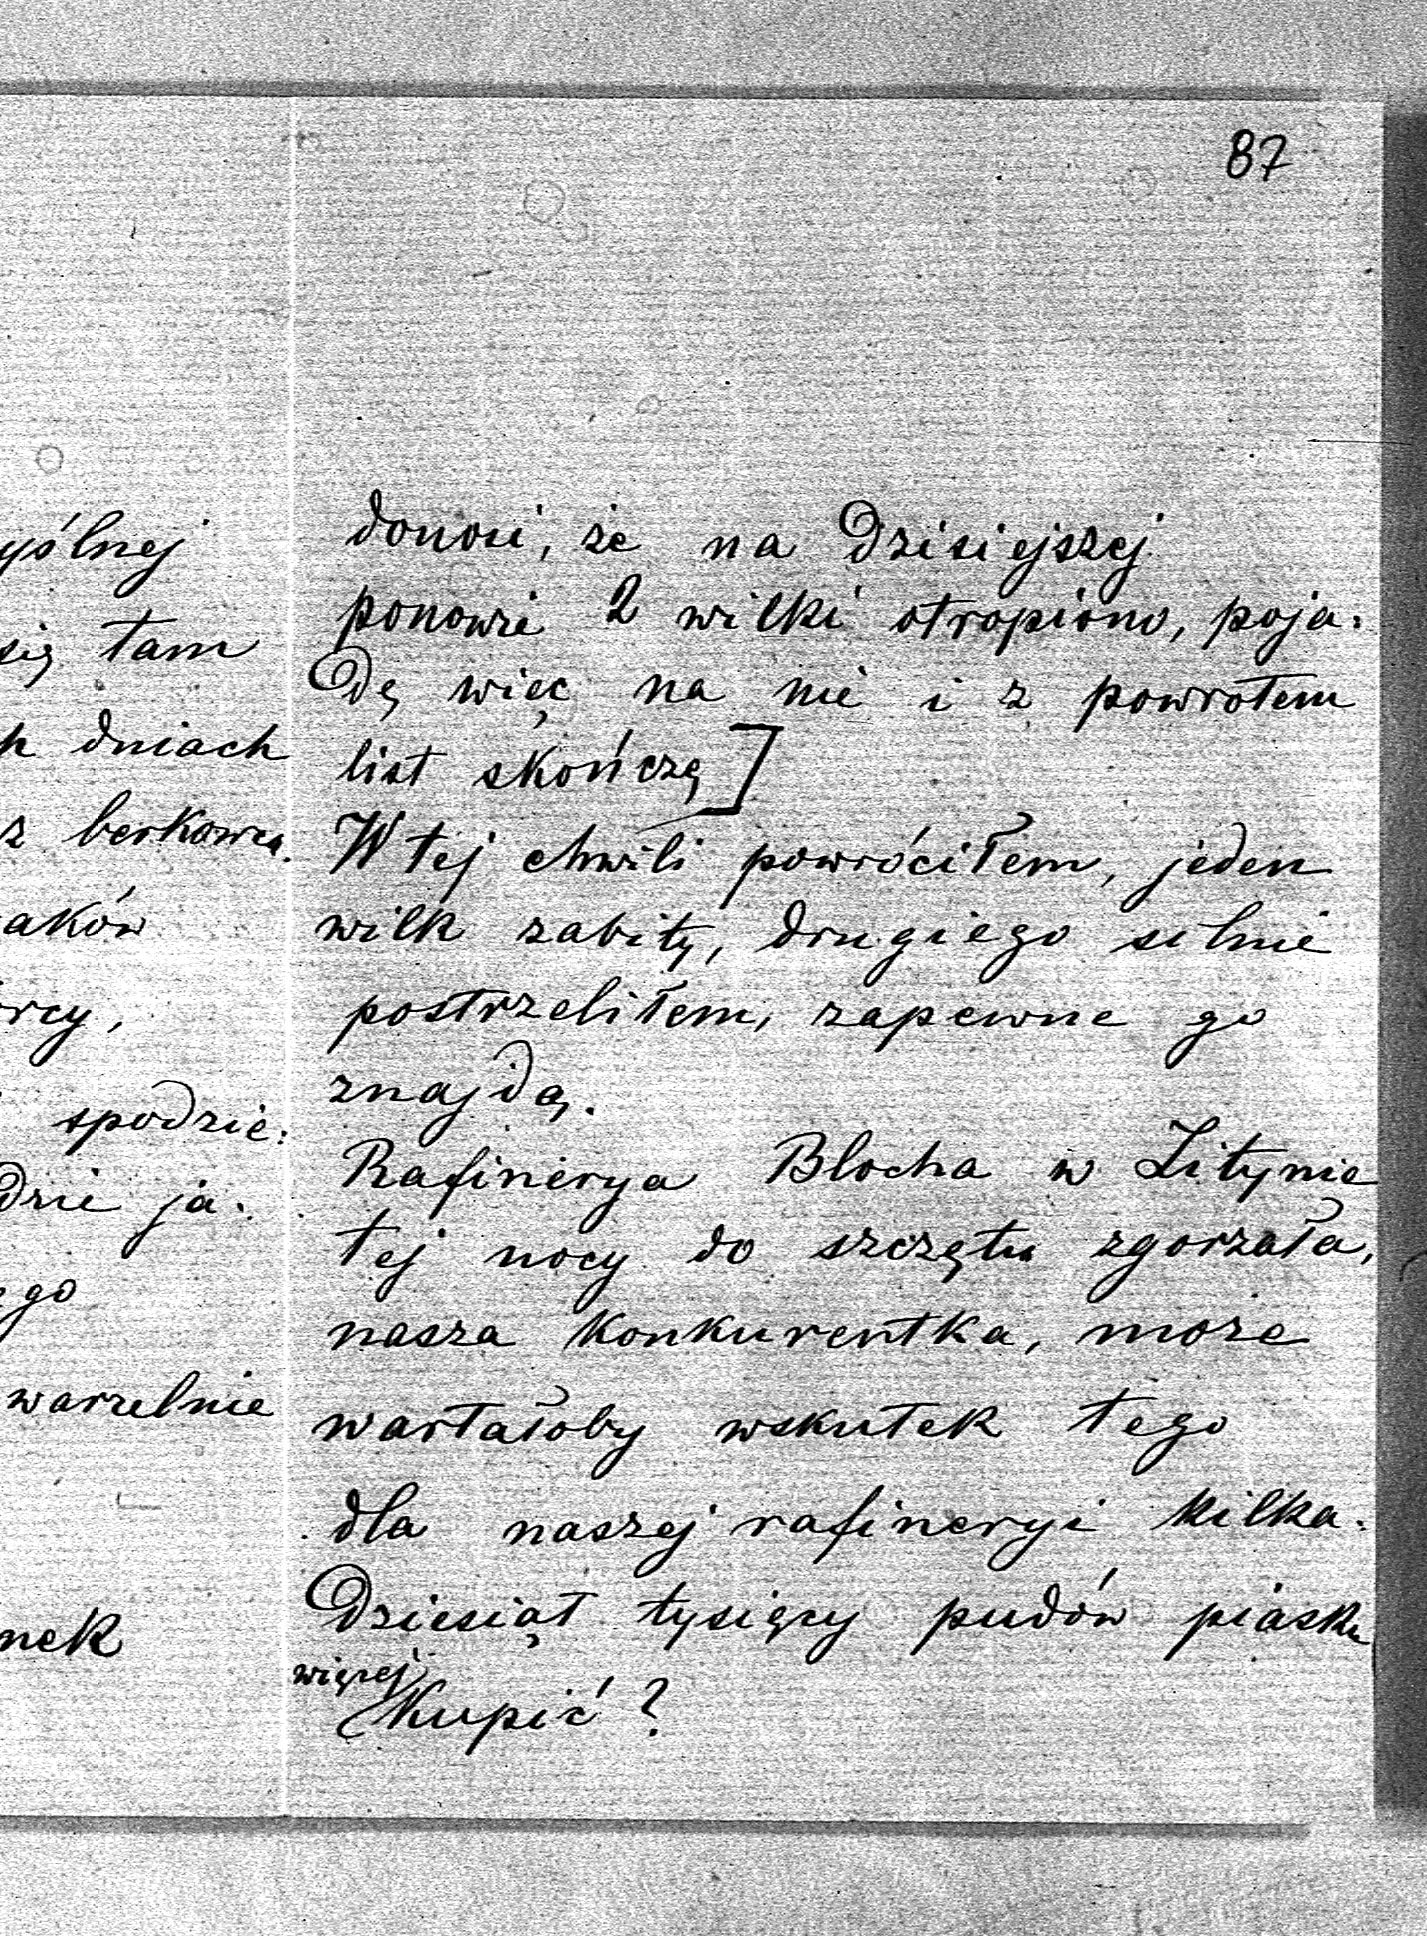 87
yślnej
się tam
h dniach
z berkowca.
aków
rcy,
spodzie:
dzie ja.
ego
warzelnie
nek
donosi, że na Dzisiejszej
ponowie 2 wilki otropiono, poja:
Dę więc na nie i z powrotem
list skończę]
W tej chwili powróciłem, jeden
wilk zabity, drugiego silnie
postrzeliłem, zapewne go
znajdą.
Rafinerya Blocha w Litynie
tej nocy do szczętu zgorzała,
nasza konkurentka, może
wartałoby wskutek tego
dla naszej rafineryi kilka:
Dziesiąt tysięcy pudów piasku
więcej
Kupić?